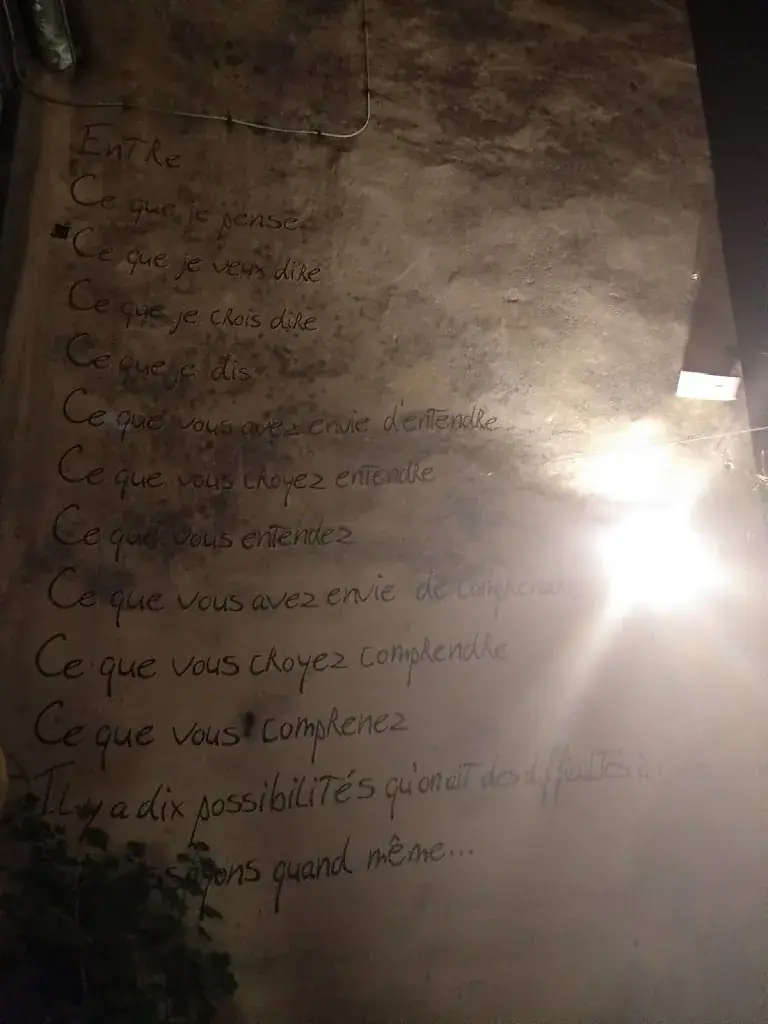 EnTRe
Ce que je pense
Ce que je veux dire
Ce que je crois dire
Ce que je dis
Ce que vous avez envie d'entendre
Ce que vous croyez entendre
Ce que vous entendez
Ce que vous avez envie de comprendre
Ce que vous croyez comprendre
Ce que vous comprenez
Il y a dix possibilités qu'on ait des difficultés à
quand même...